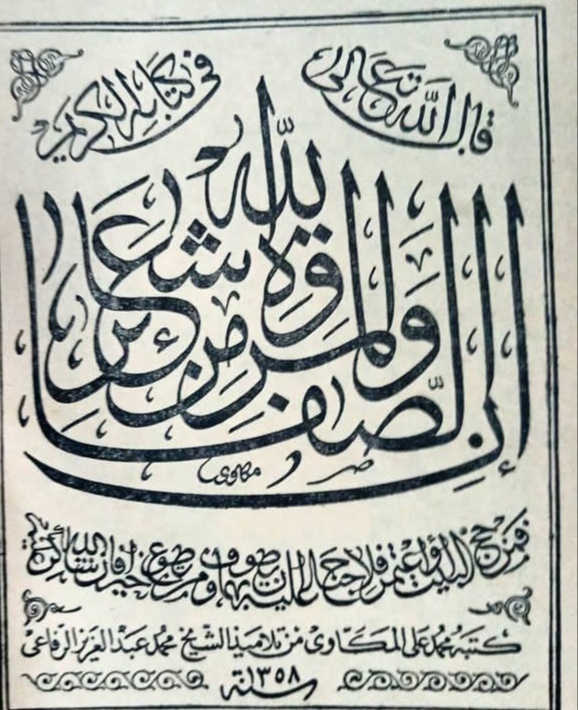 قال الله تعالى في كتابه الكريم
إن الصفا والمروة من شعائر الله
مكاوى
فمن حج البيت أو اعتمر فلا جناح عليه أن يطوف بهما ومن تطوع خيرا فإن الله شاكر عليم
كتبه محمد على المكاوى من تلاميذ الشيخ محمد عبد العزيز الرفاعى
سنة ١٣٥٨